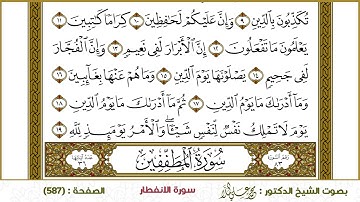 تُكَذِّبُونَ بِالدِّينِ ٩ وَإِنَّ عَلَيْكُمْ لَحَافِظِينَ ١٠ كِرَامًا كَاتِبِينَ ١١
يَعْلَمُونَ مَا تَفْعَلُونَ ١٢ إِنَّ الْأَبْرَارَ لَفِي نَعِيمٍ ١٣ وَإِنَّ الْفُجَّارَ
لَفِي جَحِيمٍ ١٤ يَصْلَوْنَهَا يَوْمَ الدِّينِ ١٥ وَمَا هُمْ عَنْهَا بِغَائِبِينَ ١٦
وَمَا أَدْرَاكَ مَا يَوْمُ الدِّينِ ١٧ ثُمَّ مَا أَدْرَاكَ مَا يَوْمُ الدِّينِ ١٨
يَوْمَ لَا تَمْلِكُ نَفْسٌ لِنَفْسٍ شَيْئًا وَالْأَمْرُ يَوْمَئِذٍ لِلَّهِ ١٩
سُورَةُ الْمُطَفِّفِينَ
بصوت الشيخ الدكتور :
سورة الانفطار
الصفحة : (587)